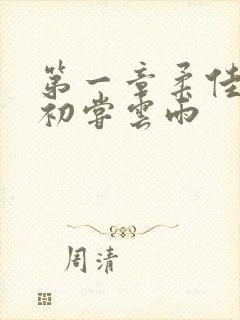 第一章柔佳
初嘗雲雨
周清